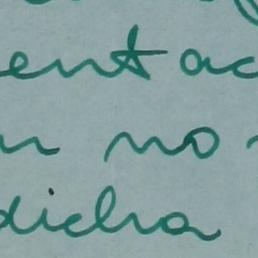 entac
n no
dicha